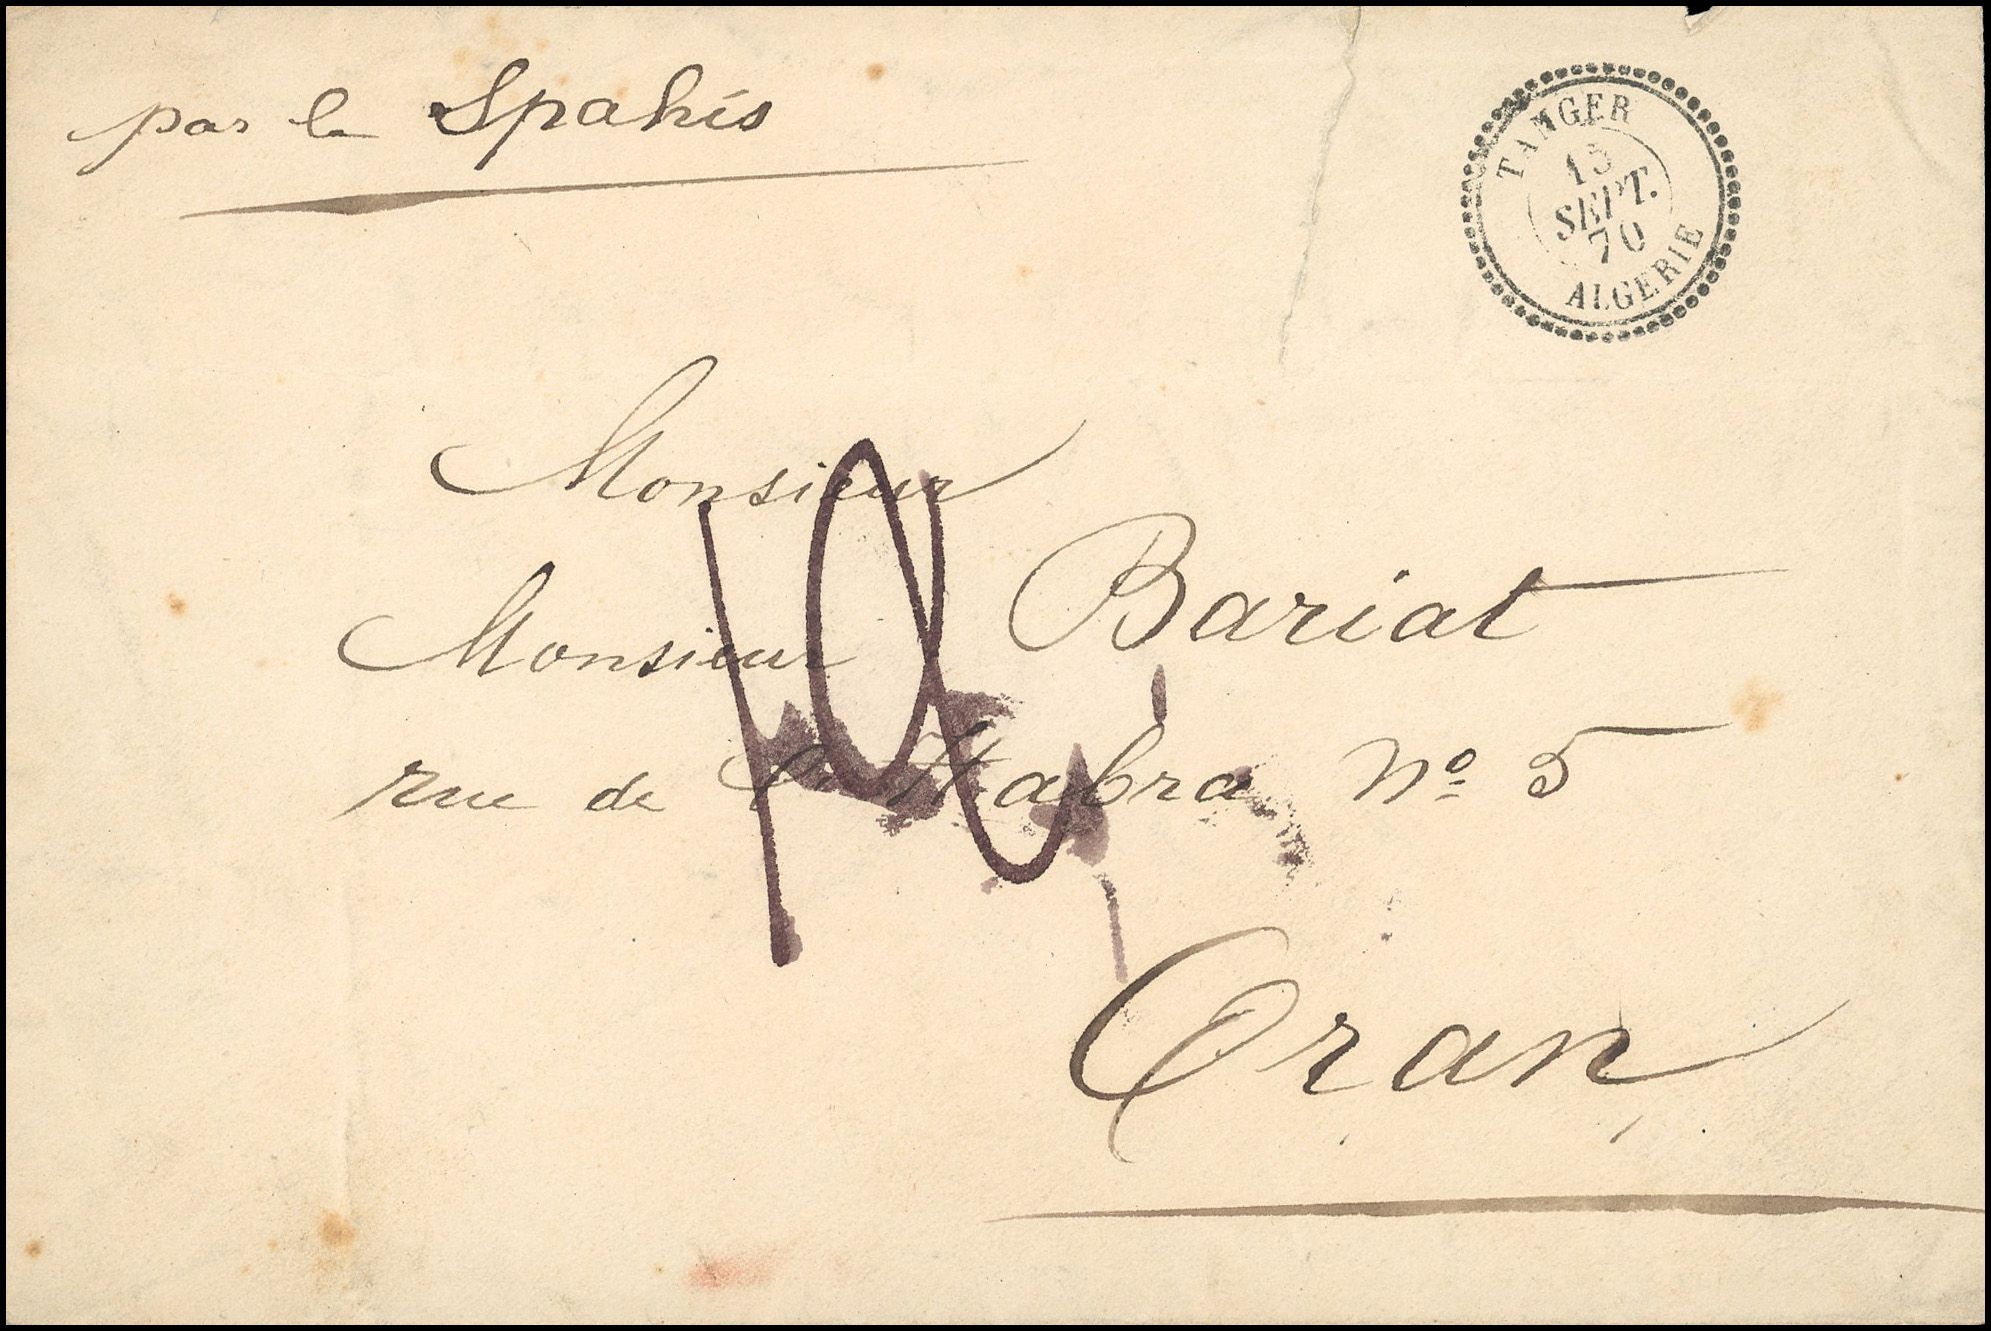 par le Spahis
TANGER
13
SEPT.
70
ALGERIE
Monsieur
Monsieur Bariat
rue de la Habra No 5
Oran